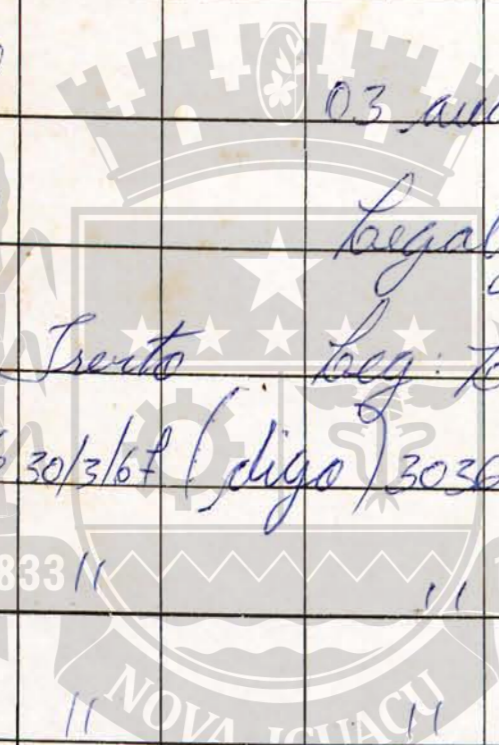 03
Legal
Isento Leg:
30/3/67 (digo) 3036
833 " "
" "
NOVA IGUAÇU